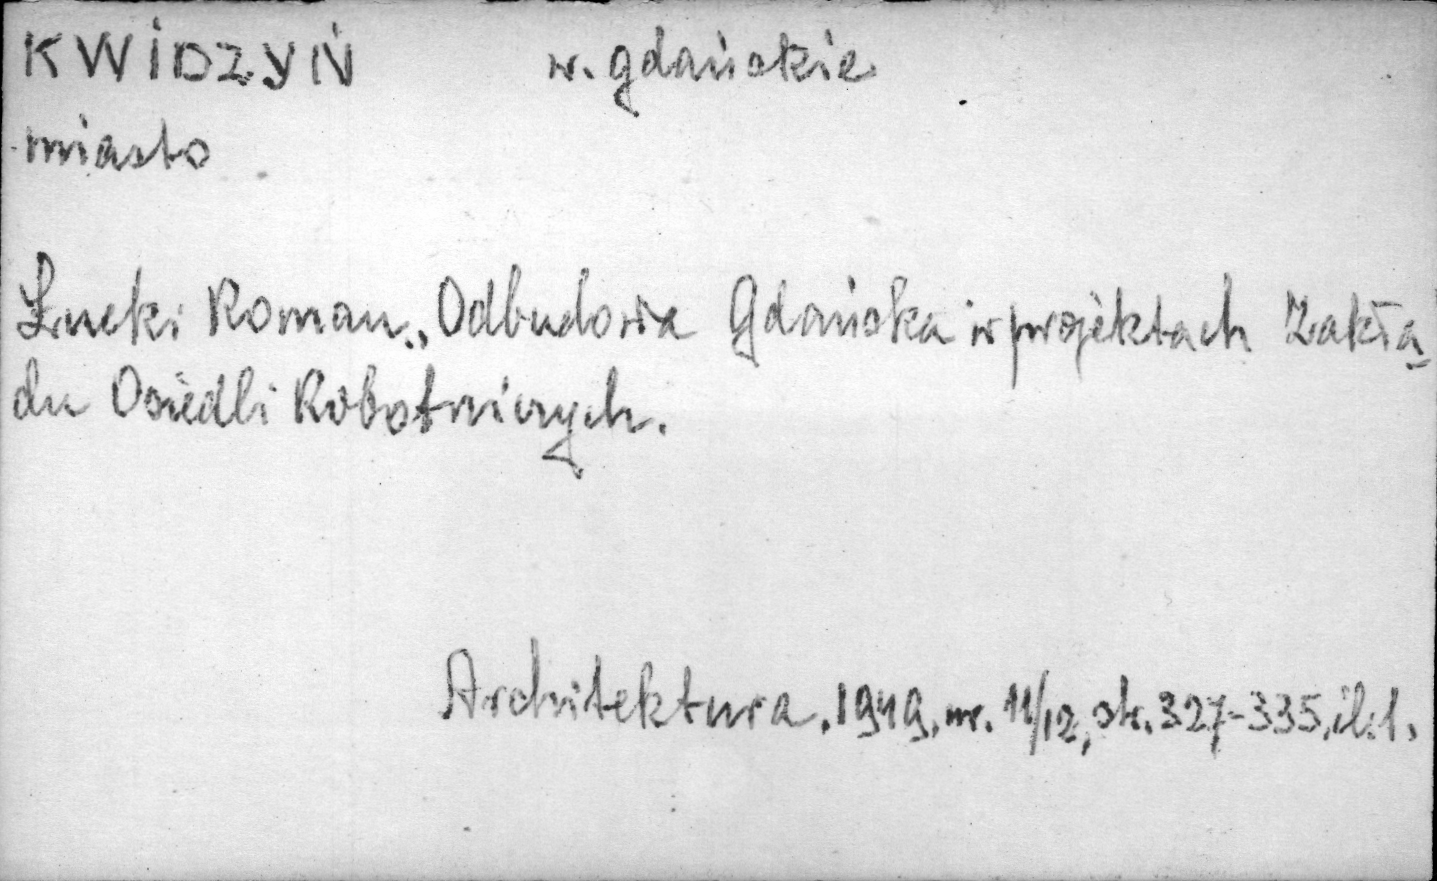 KWIDZYŃ w. gdańskie
miasto
Łucki Roman „Odbudowa Gdańska w projektach Zakła-
du Osiedli Robotniczych.
Architektura, 1949, nr. 11/12, str. 327-335, il. 1.